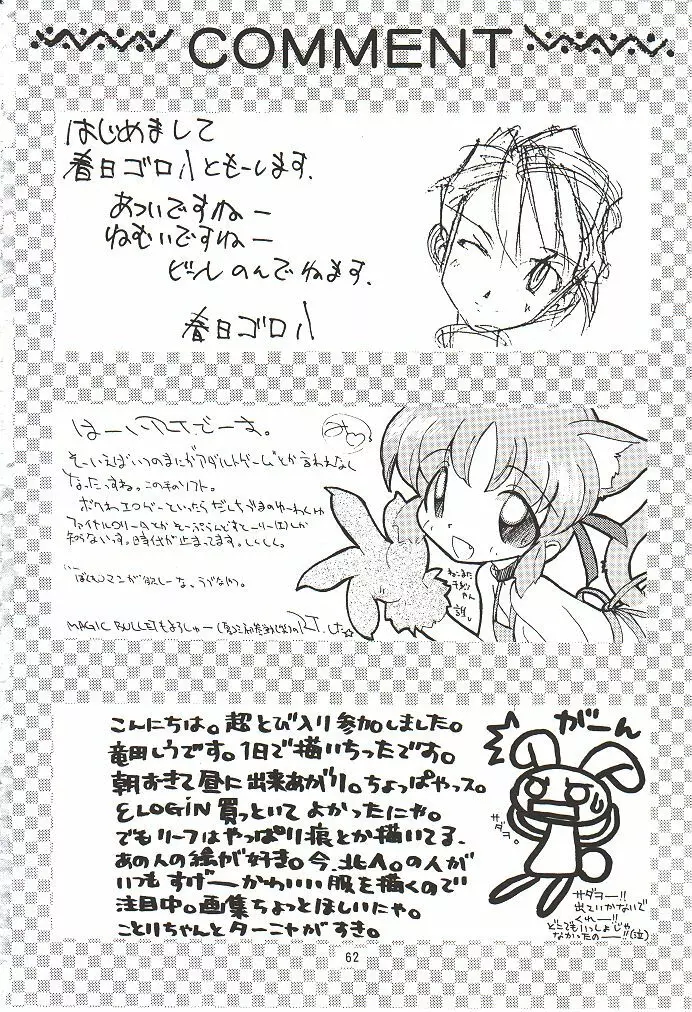 COMMENT
はじめまして
春日ゴロハともーします.
あついですねー
ねむいですねー
ビールのんでねます.
春日ゴロハ
はーい、RITでーす。
そーいえばいつのまにかアダルトゲームとか言われなく
なったっすね。この手のソフト。
知らないっす。時代が止まってます。しくしく。
ねこまた
誰。
MAGIC BULLETもよろしゅー
こんにちは。超とび入り参加しました。
竜田しうです。1日で描いちったです。
朝すぎて昼に出来あがり。ちょっぱやっス。
E LOGIN 買っといて よかったにゃ。
でもリーフはやっぱり痕とか描いてる、
あの人の絵が好き。今、北人。の人が
いつも すげーーかわいい服を描くので
注目中。画集ちょっとほしいにゃ。
ことりちゃんとターニャがすき。
がーん
サダヲ。
サダヲー!!
出ていかないで
くれー!!
どこでもいっしょじゃ
なかったのーー!!(泣)
62